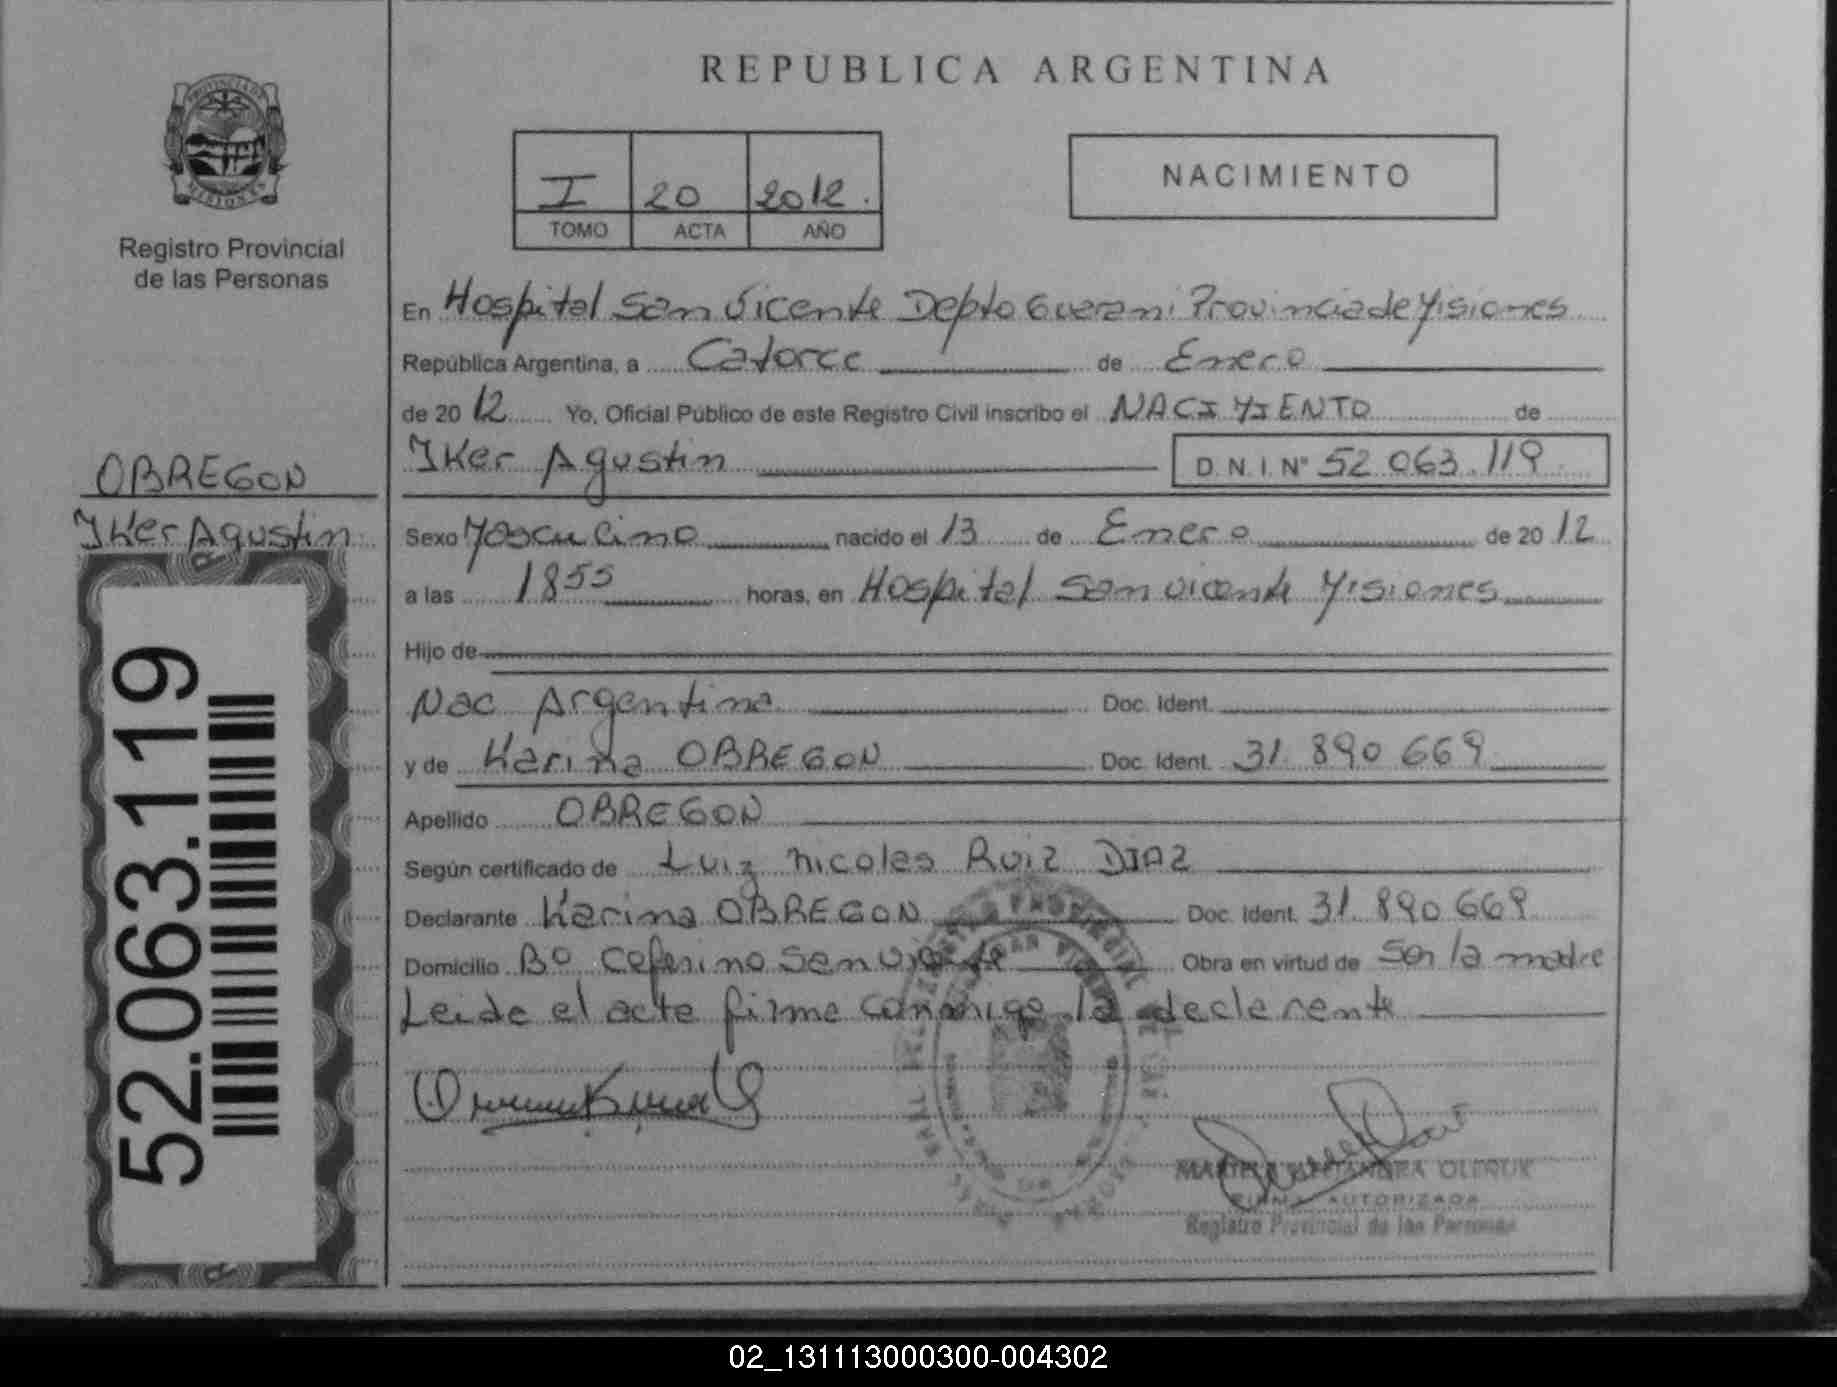 REPUBLICA ARGENTINA
PROVINCIA DE MISIONES
Registro Provincial
de las Personas
I 20 2012.
TOMO ACTA AÑO
NACIMIENTO
En Hospital San Vicente Depto Guarani Provincia de Misiones
República Argentina, a Catorce de Enero
de 2012 Yo, Oficial Público de este Registro Civil inscribo el NACIMIENTO de
Iker Agustin D.N.I. N° 52.063.119
OBREGON
Iker Agustin
Sexo Masculino nacido el 13 de Enero de 2012
a las 1855 horas, en Hospital San Vicente Misiones
Hijo de
Nac Argentina Doc. Ident.
y de Karina OBREGON Doc. Ident. 31.890.669
Apellido OBREGON
Según certificado de Luiz Nicolas Ruiz DIAZ
Declarante Karina OBREGON Doc. Ident. 31.890.669
Domicilio B° Ceferino San Vicente Obra en virtud de Ser la madre
Leida el acta firma conmigo la declarante
52.063.119
FIRMA AUTORIZADA
Registro Provincial de las Personas
02_131113000300-004302